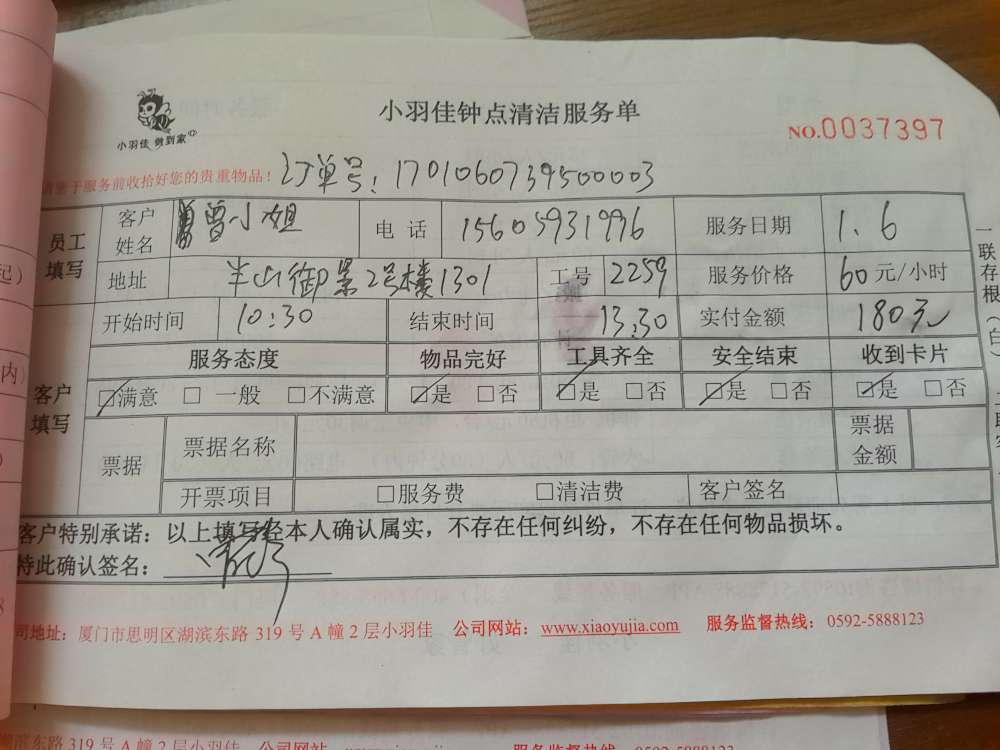 小羽佳 做到家
小羽佳钟点清洁服务单
NO.0037397
于服务前收拾好您的贵重物品！
订单号：170106073950000 3
员工填写 客户姓名 曾小姐 电话 15605931996 服务日期 1.6
地址 半山御景2号楼1301 工号 2259 服务价格 60元/小时
开始时间 10:30 结束时间 13.30 实付金额 180元
客户填写 服务态度 物品完好 工具齐全 安全结束 收到卡片
☑满意 □一般 □不满意 ☑是 □否 ☑是 □否 ☑是 □否 ☑是 □否
票据 票据名称 票据金额
开票项目 □服务费 □清洁费 客户签名
客户特别承诺：以上填写经本人确认属实，不存在任何纠纷，不存在任何物品损坏。
特此确认签名：
司地址：厦门市思明区湖滨东路 319 号 A 幢 2 层小羽佳 公司网站：www.xiaoyujia.com 服务监督热线：0592-5888123
一联存根（白）
滨东路 319 号 A 幢 2 层小羽佳 公司网站